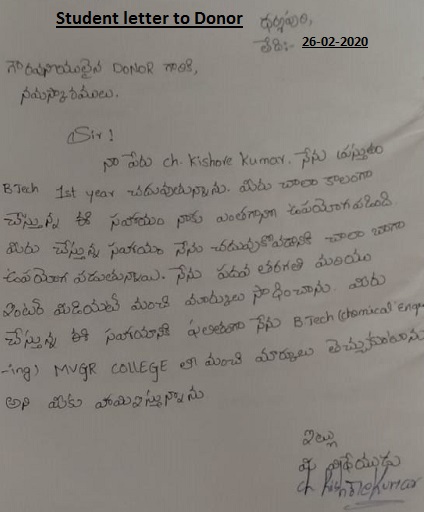 Student letter to Donor
ధర్మపురి,
తేది:- 26-02-2020
గౌరవనీయులైన DONOR గారికి,
నమస్కారములు.
Sir!
నా పేరు ch. Kishore Kumar. నేను ప్రస్తుతం
BTech 1st year చదువుతున్నాను. మీరు చాలా కాలంగా
చేస్తున్న ఈ సహాయం నాకు ఎంతగానో ఉపయోగపడింది.
మీరు చేస్తున్న సహాయం నేను చదువుకోవడానికి చాలా బాగా
ఉపయోగ పడుతున్నాయి. నేను పదవ తరగతి మరియు
ఇంటర్ మీడియట్ మంచి మార్కులు సాధించాను. మీరు
చేస్తున్న ఈ సహాయానికి ఫలితంగా నేను B Tech (chemical Engineer
-ing) MVGR COLLEGE లో మంచి మార్కులు తెచ్చుకుంటాను
అని మీకు హామిఇస్తున్నాను
ఇట్లు
మీ విధేయుడు
ch Kishore Kumar